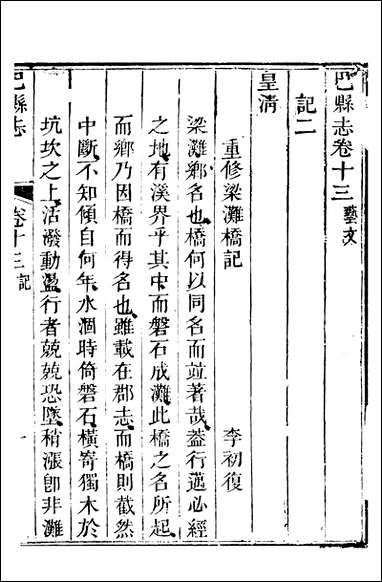 巴縣志卷十三 藝文
記二
皇清
重修梁灘橋記 李初復
梁灘鄉名也橋何以同名而並著哉蓋行邁必經
之地有溪界乎其中而磐石成灘此橋之名所起
而鄉乃因橋而得名也雖載在郡志而橋則截然
中斷不知傾自何年水涸時倚磐石橫寄獨木於
坑坎之上活潑動盪行者兢兢恐墜稍漲卽非灘
巴縣志 卷十三 記 一